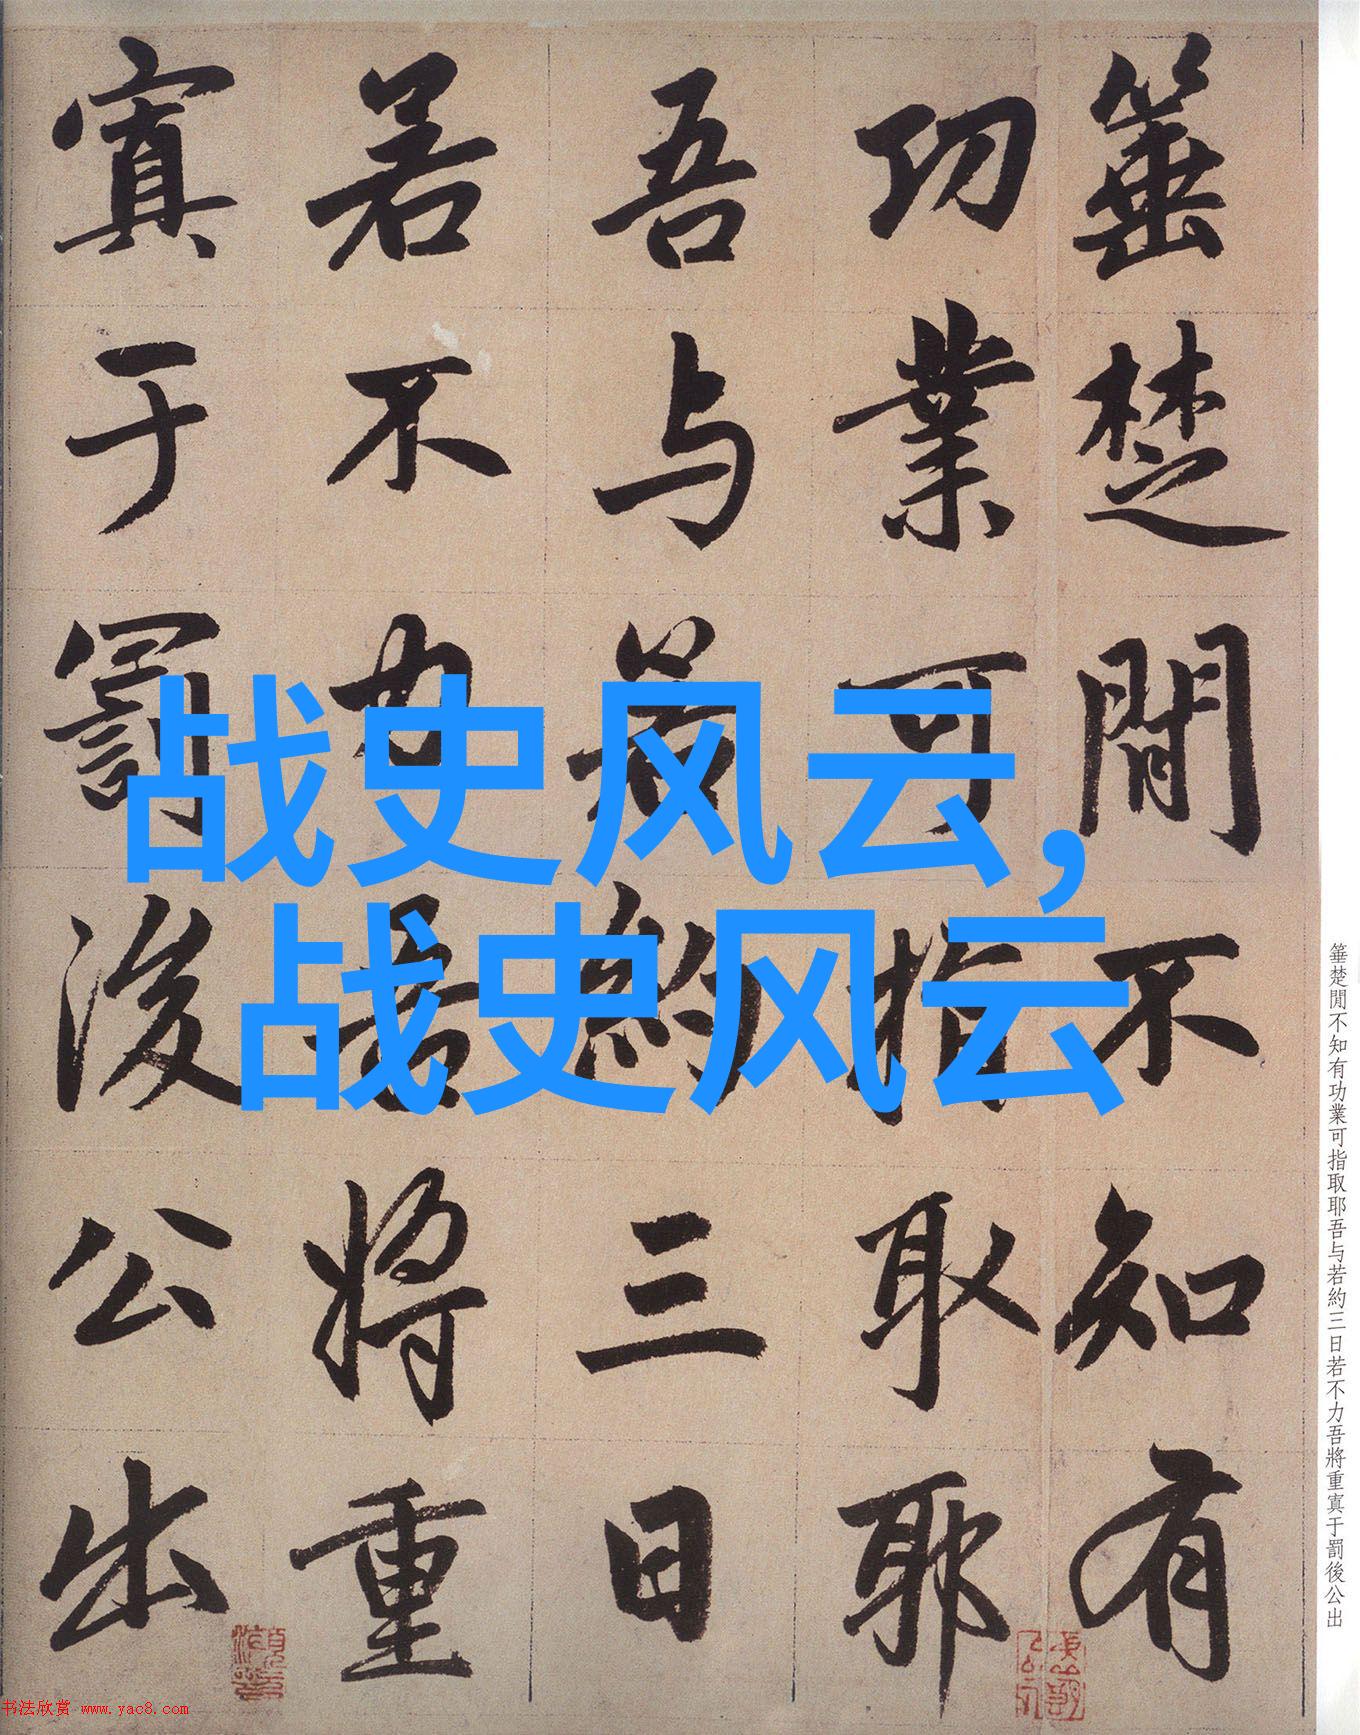 箠楚閒不知有
功業可指取耶
吾与若約三日
若不力吾將重
寘于罰後公出
战史风云,
战史风云
箠楚閒不知有功業可指取耶吾与若約三日若不力吾將重寘于罰後公出
书法欣赏 www.yac8.com